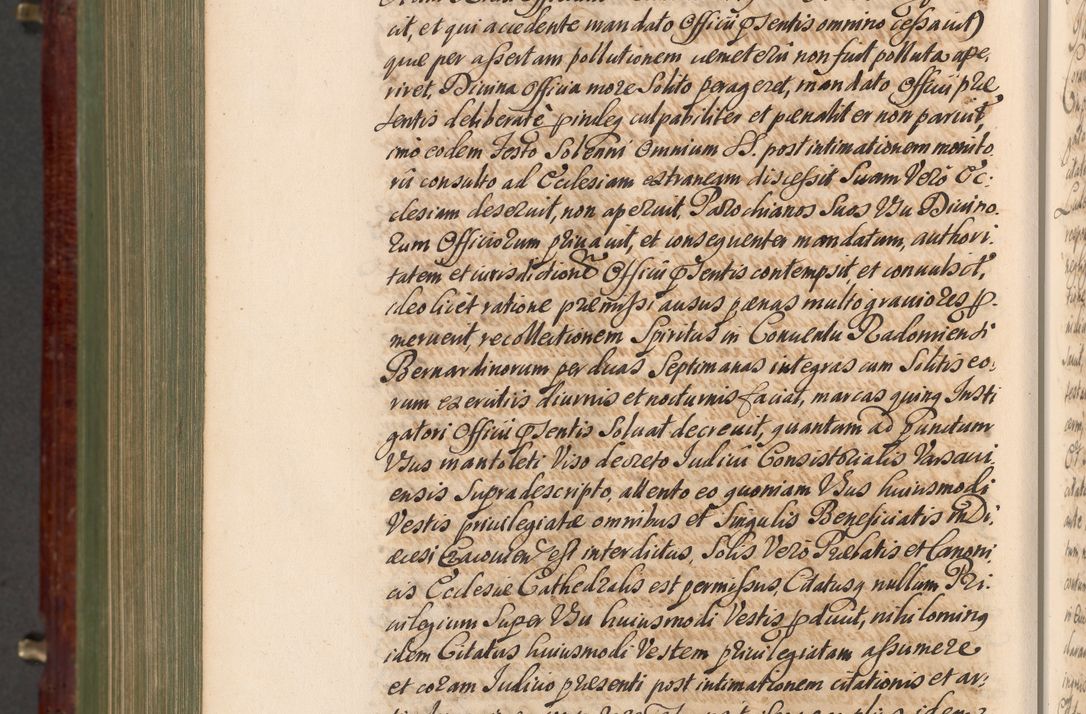 cit, et qui accedente mandato Officii p̃sentis omnino cessavit)
quæ per assertam pollutionem cœmeterii non fuit polluta ape-
riret, Divina Officia more Solito perageret, mandato Officii præ
sentis deliberatè culpabiliter et pœnaliter non paruit,
imo eodem Festo Solenni Omnium SS. post intimationem monito
rii consulto ad Ecclesiam extraneam discessit Suam Verò Ec:
clesiam deseruit, non aperuit, Parochianos Suos Usu Divino-
rum Officiorum privavit, et consequenter mandatum, authori-
tatem et iurisdictionẽ Officii p̃sentis contempsit, et convulsit,
ideo licet ratione præmissi ausus pænas multo graviores p-
meruerit, recollectionem Spiritus in Conventu Radomiensi
Bernardinorum per duas Septimanas integras cum Solitis eo-
rum exercitiis diurnis et nocturnis faciat, marcas quinq Insti
gatori Officii p̃sentis Solvat decrevit, quantum ad punctum
Usus mantoleti Viso decreto Iudicii Consistorialis Varsavi-
ensis Supradescripto, attento eo quoniam Usus huiusmodi
Vestis privilegiatæ omnibus et Singulis Beneficiatis in Di-
æcesi Cracovien est interdictus, Solis Verò Prælatis et Canoni
cis Ecclesiæ Cathedralis est permissus, Citatusq nullum Pri-
vilegium Super Usu huiusmodi Vestis pduxit, nihilominq
idem Citatus huiusmodi Vestem privilegiatam assumere
et coram Iudicio præsenti post intimationem citationis et ar-